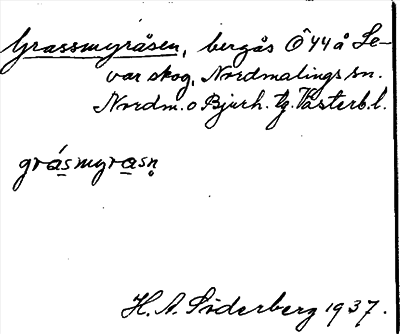 Grassmyråsen, bergås Ö 44 å Le-
var skog, Nordmalings sn.
Nordm. o Bjurh. tg. Västerb. l.
grásmyrasn̥
H. A. Söderberg 1937.